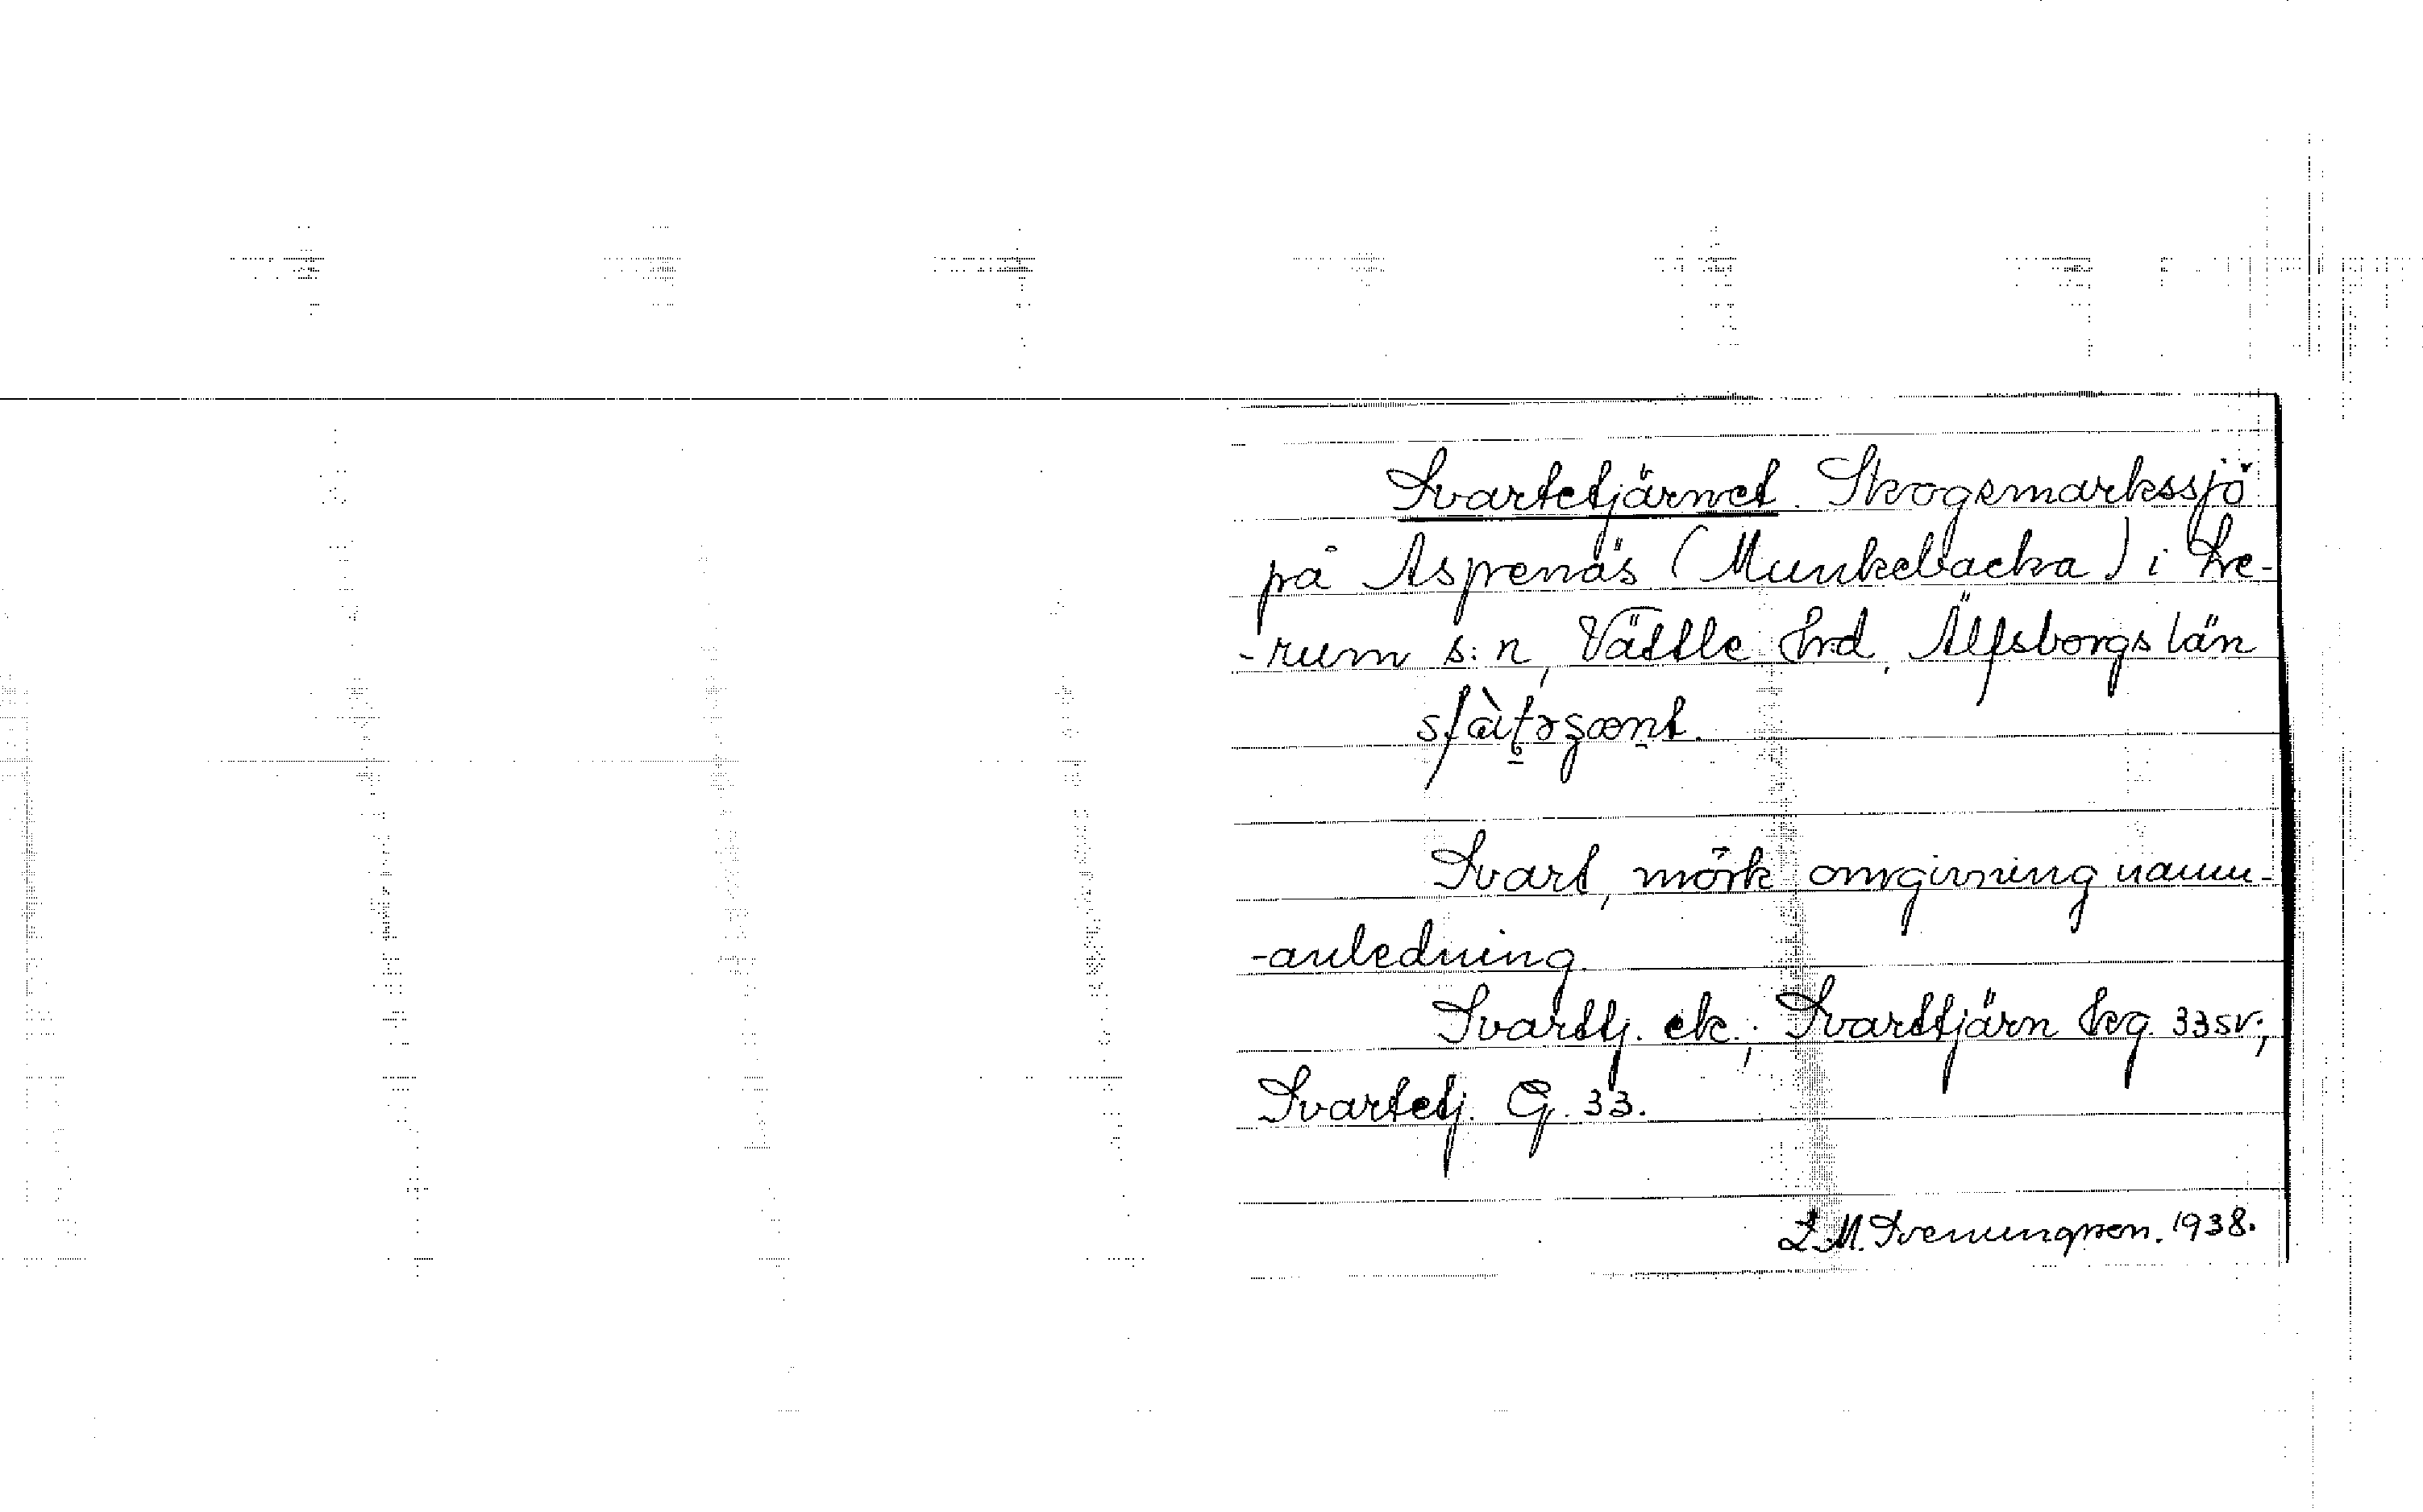 Svartetjärnet. Skogsmarkssjö
på Aspenäs (Munkebacka) i Le-
-rum s:n, Vättle hrd, Älfsborgs län
Svart, mörk omgivning namn-
-anledning.
Svarttj. ek.; Svarttjärn kg. 33sv;
Svartetj. G. 33.
1938.